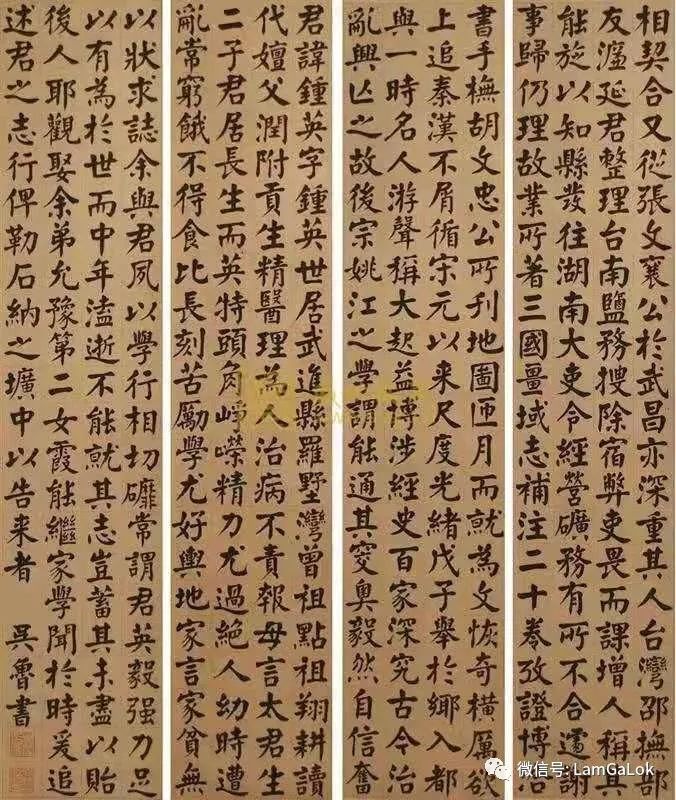 君諱鍾英字鍾英世居武進縣羅墅灣曾祖點祖翔耕讀
代嬗父潤附貢生精醫理為人治病不責報母言太君生
二子君居長生而英特頭角崢嶸精力尤過絕人幼時遭
亂常窮餓不得食比長刻苦勵學尤好輿地家言家貧無
書手橅胡文忠公所刊地圖匝月而就為文恢奇橫厲欲
上追秦漢不屑循宋元以來尺度光緒戊子舉於鄉入都
與一時名人游聲稱大起益博涉經史百家深究古今治
亂興亡之故後宗姚江之學謂能通其窔奧毅然自信奮
相契合又從張文襄公於武昌亦深重其人台灣邵撫部
友濂延君整理台南鹽務搜除宿弊吏畏而課增人稱其
能旋以知縣發往湖南大吏令經營礦務有所不合遽謝
事歸仍理故業所著三國疆域志補注二十卷攷證博洽
以狀求誌余與君夙以學行相切䃺常謂君英毅强力足
以有為於世而中年溘逝不能就其志豈蓄其未盡以貽
後人耶觀娶余弟允豫第二女霞能繼家學聞於時爰追
述君之志行俾勒石納之壙中以告來者 吳魯書
微信号: LamGaLok